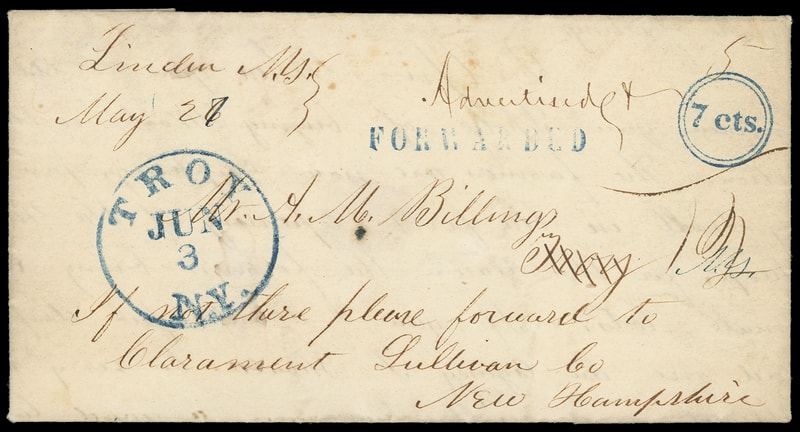 Linden N.Y.
May 27
Advertised &
5
7 cts.
FORWARDED
TROY
JUN
3
N.Y.
Mr. A. M. Billings
Troy N.Y.
If not there please forward to
Claramont Sullivan Co
New Hampshire